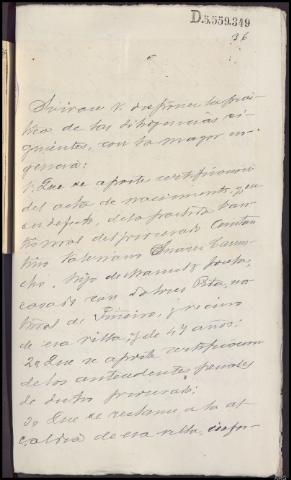 D.5.559.349
36
Sírvase V. disponer la prác-
tica de las diligencias si-
guientes, con la mayor ur-
gencia:
1º Que se aporte certificación
del acta de nacimiento, y en
su defecto, de la partida bau-
tismal del procesado Constan-
tino Valeriano Suarez
hijo de Manuel y
casado con Dolores na-
tural de Piñeiro, y vecino
de esa villa, y de 47 años.
2º Que se aporte certificación
de los antecedentes penales
de dicho procesado;
3º Que se reclame a la al-
caldía de esa villa, infor-